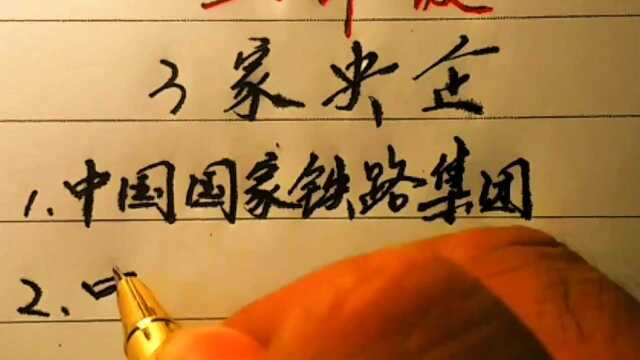 3家央企
1.中国国家铁路集团
2、